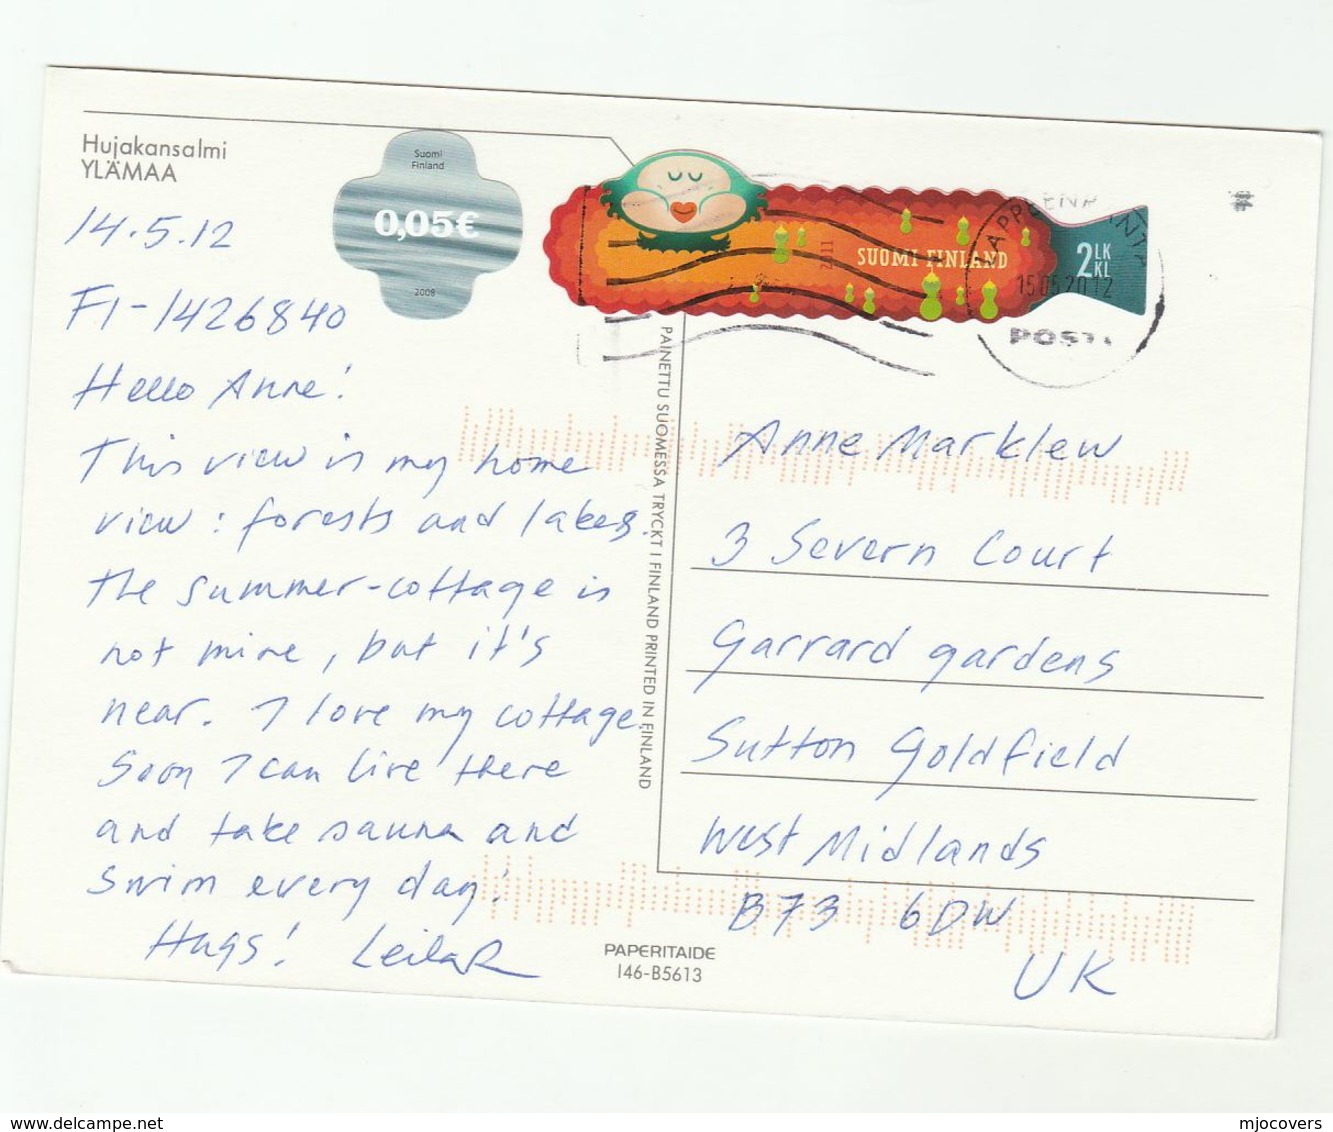 Hujakansalmi
YLÄMAA
Suomi
Finland
0,05€
2008
2011
SUOMI FINLAND
2 LK
KL
15.05.2012
POSTI
14.5.12
FI-1426840
Hello Anne!
This view is my home
view: forests and lakes.
The summer-cottage is
not mine, but it's
near. I love my cottage.
Soon I can live there
and take sauna and
swim every day!
Hugs! Leila R
PAINETTU SUOMESSA TRYCKT I FINLAND PRINTED IN FINLAND
Anne Marklew
3 Severn Court
Garrard gardens
Sutton Goldfield
West Midlands
B73 6DW
UK
PAPERITAIDE
146-B5613
www.delcampe.net
mjocovers